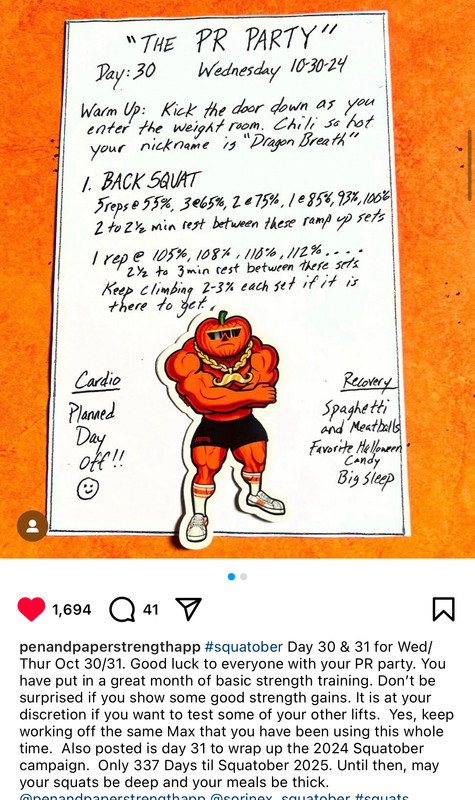 "THE PR PARTY"
Day: 30 Wednesday 10-30-24
Warm Up: Kick the door down as you
enter the weight room. Chili so hot
your nickname is "Dragon Breath"
1. BACK SQUAT
5reps @ 55%, 3@65%, 2@75%, 1@85%, 93%, 100%
2 to 2½ min rest between these ramp up sets
1 rep @ 105%, 108%, 110%, 112%....
2½ to 3min rest between these sets
Keep climbing 2-3% each set if it is
there to get.
Cardio
Planned
Day
Off!!
Recovery
Spaghetti
and Meatballs
Favorite Halloween
Candy
Big Sleep
1,694 41
penandpaperstrengthapp #squatober Day 30 & 31 for Wed/
Thur Oct 30/31. Good luck to everyone with your PR party. You
have put in a great month of basic strength training. Don't be
surprised if you show some good strength gains. It is at your
discretion if you want to test some of your other lifts.  Yes, keep
working off the same Max that you have been using this whole
time.  Also posted is day 31 to wrap up the 2024 Squatober
campaign.  Only 337 Days til Squatober 2025. Until then, may
your squats be deep and your meals be thick.
@penandpaperstrengthapp @sorinex_squatober #squats